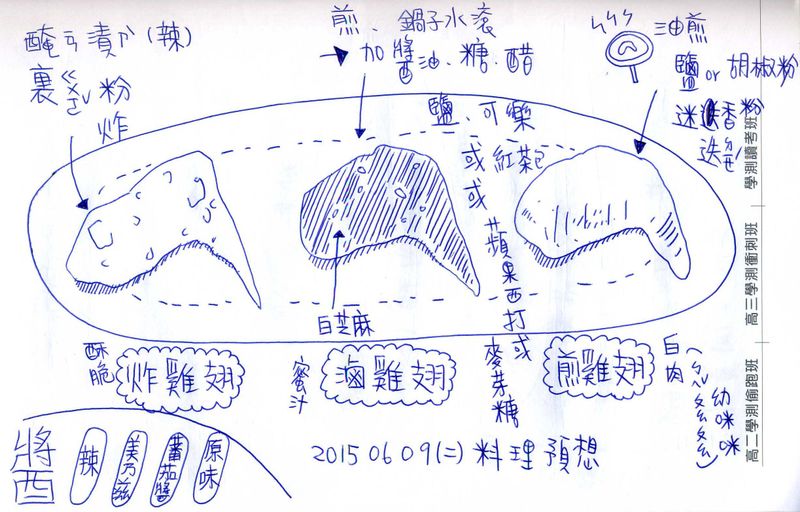 醃ㄢ漬ㄗˋ(辣)
裹ㄍㄨㄛˇ粉
炸
煎、鍋子水滾
→加醬油、糖、醋
鹽、可樂
或紅茶包
或蘋果西打或
麥芽糖
油煎
鹽or胡椒粉
迷迭香粉
迭
白芝麻
酥脆
炸雞翅
蜜汁
滷雞翅
煎雞翅
白肉
幼咪咪
將酉
辣
美乃茲
蕃茄醬
原味
20150609(二)料理預想
學測讀考班
高三學測衝刺班
高二學測偷跑班